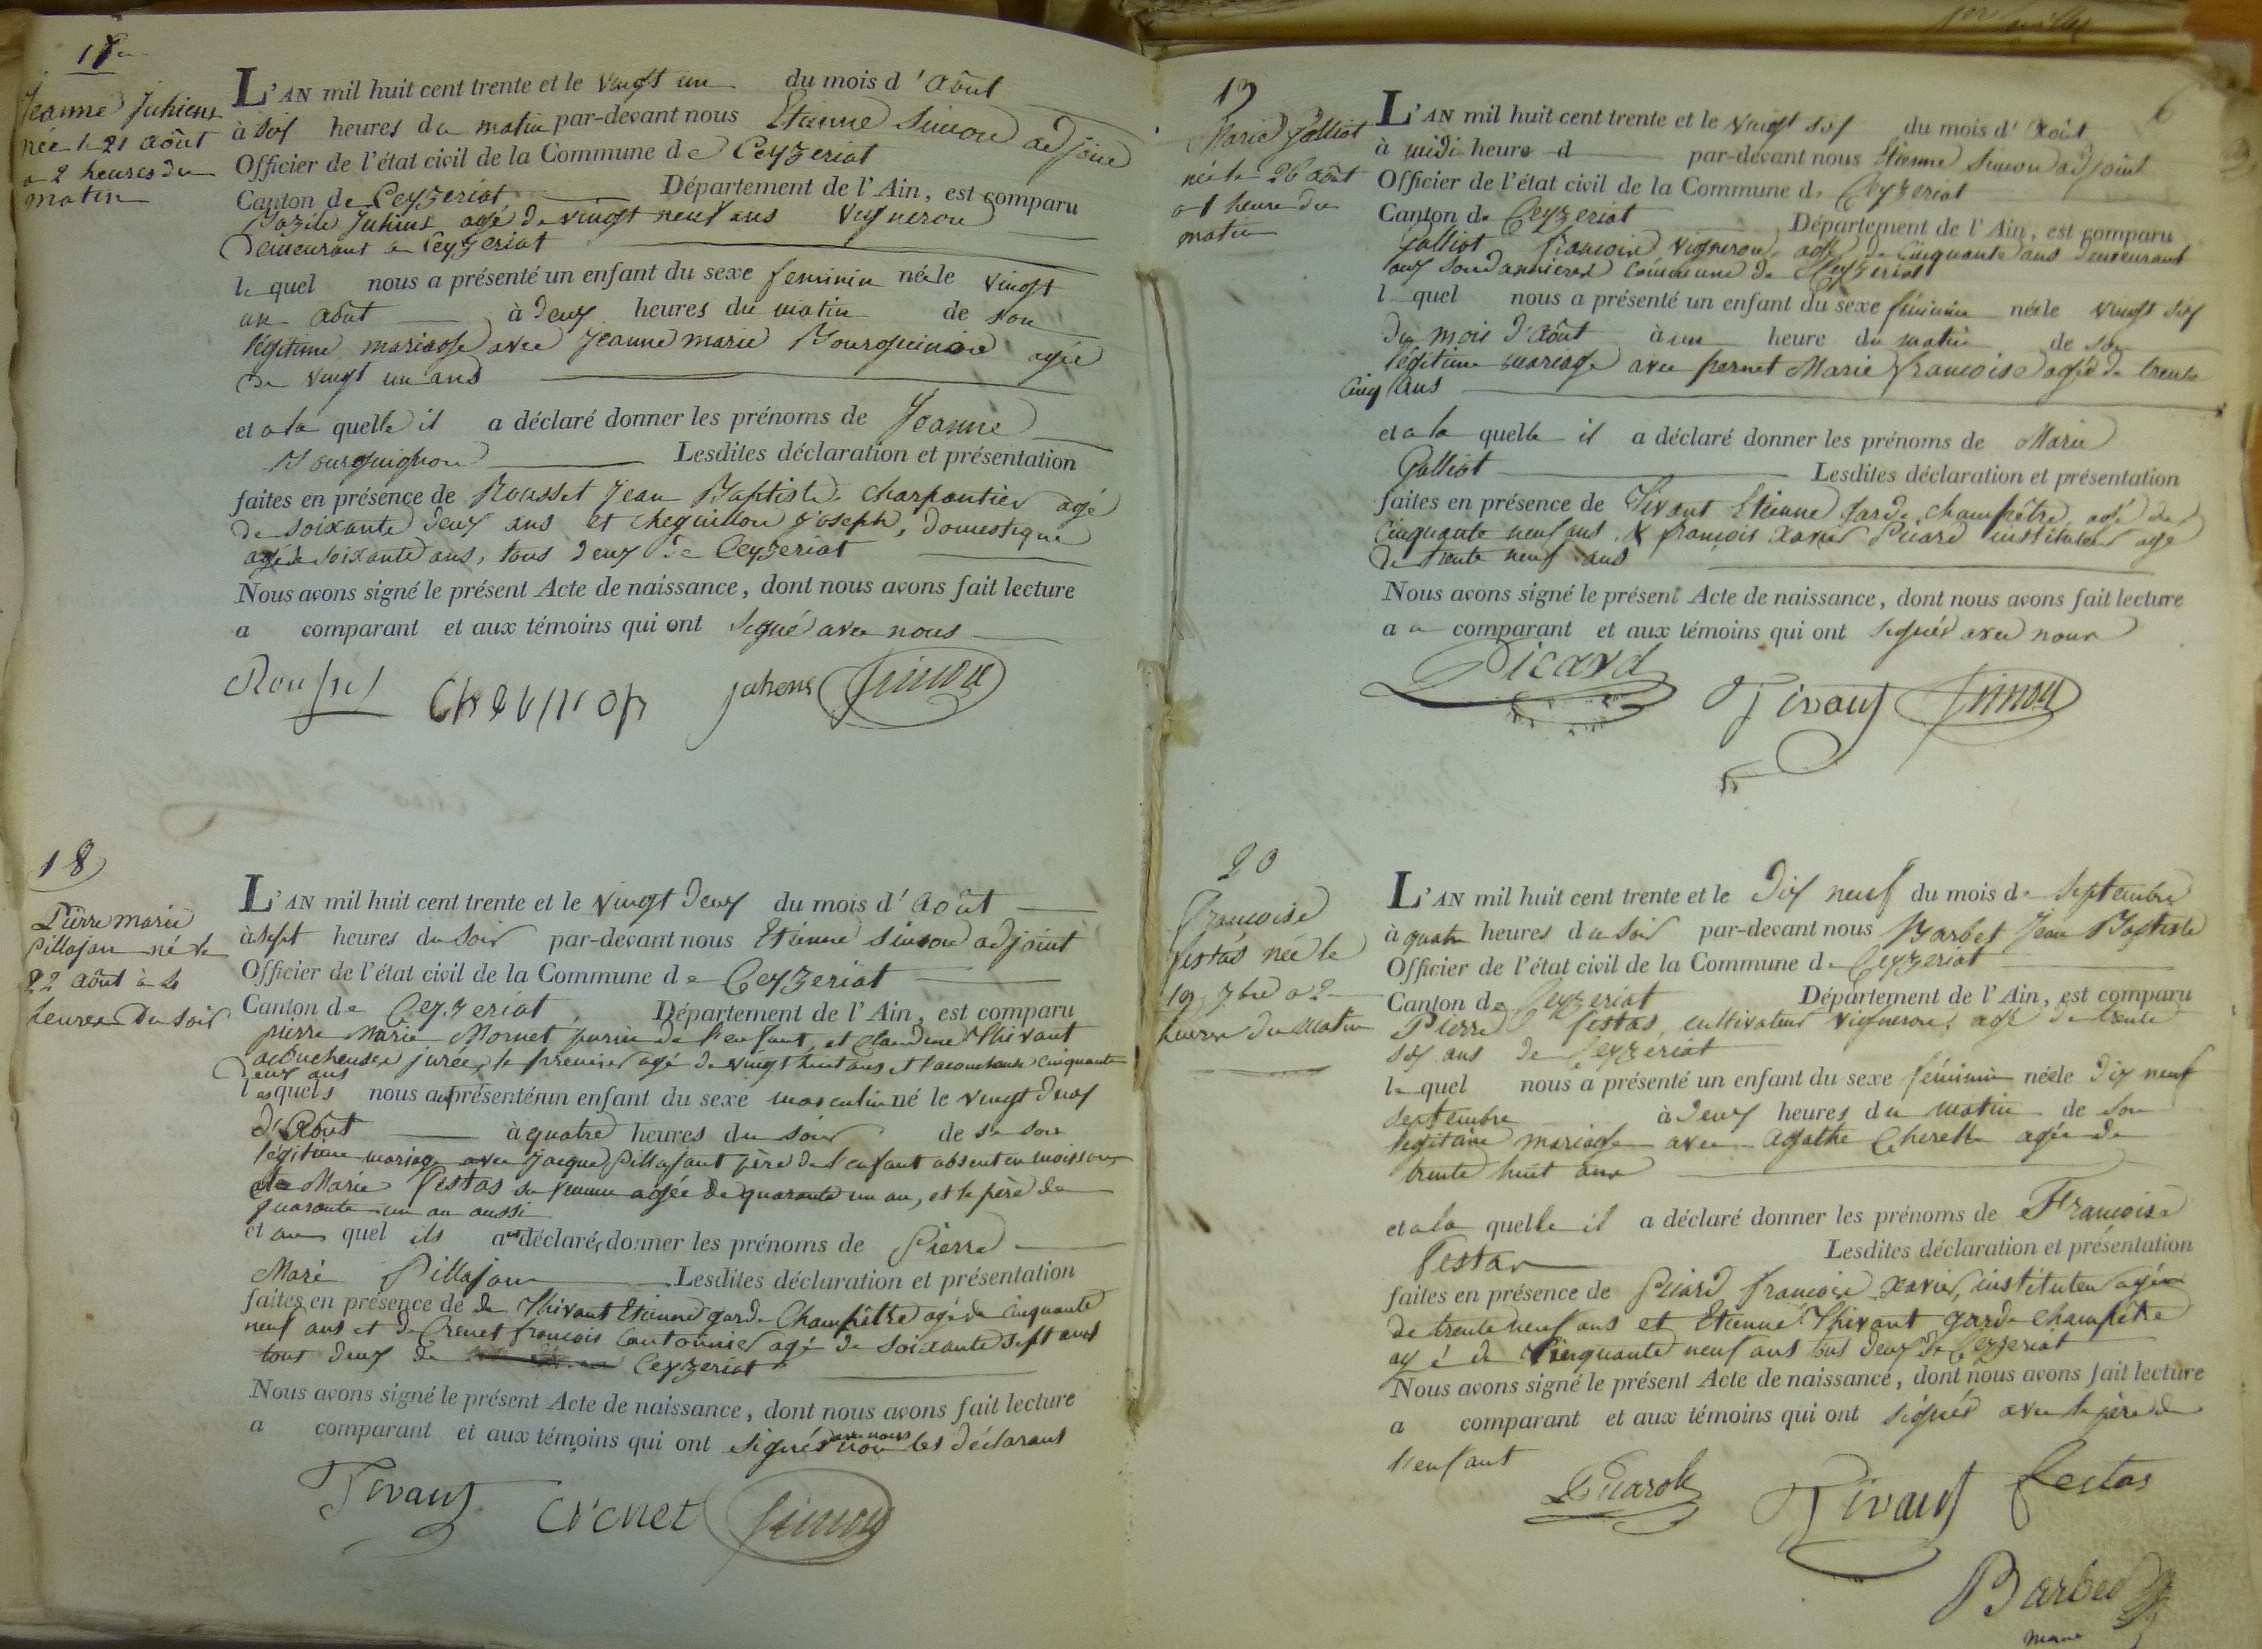 17
Jeanne Juhiens
née le 21 août
a 2 heures du
matin
L'AN mil huit cent trente et le vingt un du mois d'Août
à six heures du matin par-devant nous Etienne Simon adjoint
Officier de l'état civil de la Commune de Ceyzeriat
Canton de Ceyzeriat Département de l'Ain, est comparu
Bazile Juhiens agé de vingt neuf ans Vigneron
Demeurant a Ceyzeriat
le quel nous a présenté un enfant du sexe feminin née le vingt
un août à deux heures du matin de son
légitime mariage avec Jeanne marie Bourguignon agée
De vingt un ans
et a la quelle il a déclaré donner les prénoms de Jeanne
Bourguignon Lesdites déclaration et présentation
faites en présence de Rousset Jean Baptiste charpentier agé
de soixante deux ans et Cheguillon joseph, domestique
agé de soixante ans, tous deux de Ceyzeriat
Nous avons signé le présent Acte de naissance, dont nous avons fait lecture
a comparant et aux témoins qui ont signé avec nous
Rousset juhens Simon
18
Pierre marie
Pillajou né le
22 août à 4
heures Du soir
L'AN mil huit cent trente et le vingt deux du mois d'Août
à sept heures du soir par-devant nous Etienne Simon adjoint
Officier de l'état civil de la Commune de Ceyzeriat
Canton de Ceyzeriat Département de l'Ain, est comparu
pierre Marie Mornet parin de l'enfant, et Claudine Thivant
acoucheuse jurée, le premier agé de vingt huit ans et l'acoucheuse cinquante
deux ans
lesquels nous ont présentés un enfant du sexe masculin né le vingt deux
d'Août à quatre heures du soir de son
légitime mariage avec Jacque Pillajout père de l'enfant absent en moissons
Marie Festas sa femme agée de quarante un an, et le père de
quarante un an aussi
et au quel ils ont déclarés donner les prénoms de Pierre
Marie Pillajou Lesdites déclaration et présentation
faites en présence de de Thivant Etienne garde Champêtre agé de Cinquante
neuf ans et de Crenet françois Cantonnier agé de soixante sept ans
tous deux de Ceyzeriat
Nous avons signé le présent Acte de naissance, dont nous avons fait lecture
a comparant et aux témoins qui ont signés avec nous non les déclarans
Tivant Crenet Simon
19
Marie Palliot
née le 26 août
a 1 heure du
matin
L'AN mil huit cent trente et le vingt six du mois d'Août
à midi heure d par-devant nous Etienne Simon adjoint
Officier de l'état civil de la Commune de Ceyzeriat
Canton de Ceyzeriat Département de l'Ain, est comparu
Palliot françois vigneron, agé de cinquante ans demeurant
aux commune de Ceyzeriat
l quel nous a présenté un enfant du sexe féminin née le vingt six
du mois d'Août à un heure du matin de son
légitime mariage avec pernet Marie françoise agée de trente
Cinq ans
et a la quelle il a déclaré donner les prénoms de Marie
Palliot Lesdites déclaration et présentation
faites en présence de Tivant Etienne garde champêtre agé de
Cinquante neuf ans & françois Xavier Picard instituteur agé
De trente neuf ans
Nous avons signé le présent Acte de naissance, dont nous avons fait lecture
a comparant et aux témoins qui ont signés avec nous
Picard Tivant Simon
20
Françoise
Festas née le
19 7bre a 2
heures du matin
L'AN mil huit cent trente et le dix neuf du mois de septembre
à quatre heures du soir par-devant nous Barbet Jean Baptiste
Officier de l'état civil de la Commune de Ceyzeriat
Canton de Ceyzeriat Département de l'Ain, est comparu
Pierre Festas, cultivateur vigneron, agé de trente
six ans de Ceyzériat
le quel nous a présenté un enfant du sexe féminin née le dix neuf
septembre à deux heures du matin de son
légitime mariage avec Agathe Cherelle agée de
trente huit ans
et a la quelle il a déclaré donner les prénoms de Françoise
Festas Lesdites déclaration et présentation
faites en présence de Picard françois xavier, instituteur agé
de trente neuf ans et Etienne Thivant garde champêtre
agé de Cinquante neuf ans tous deux de Ceyzeriat
Nous avons signé le présent Acte de naissance, dont nous avons fait lecture
a comparant et aux témoins qui ont signés avec le père de
l'enfant
Picard Tivant festas
Barbet
maire